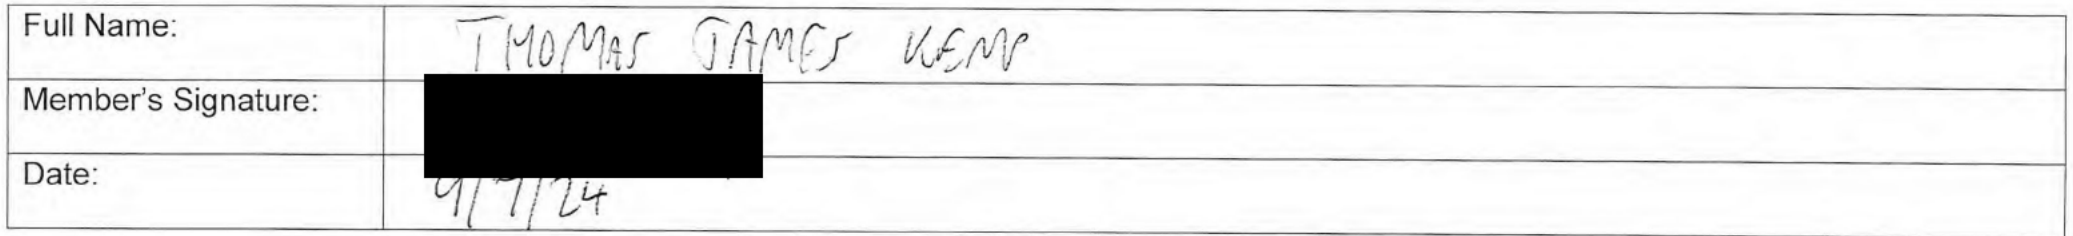 Full Name: THOMAS JAMES KEMP
Member's Signature:
Date: 9/7/24